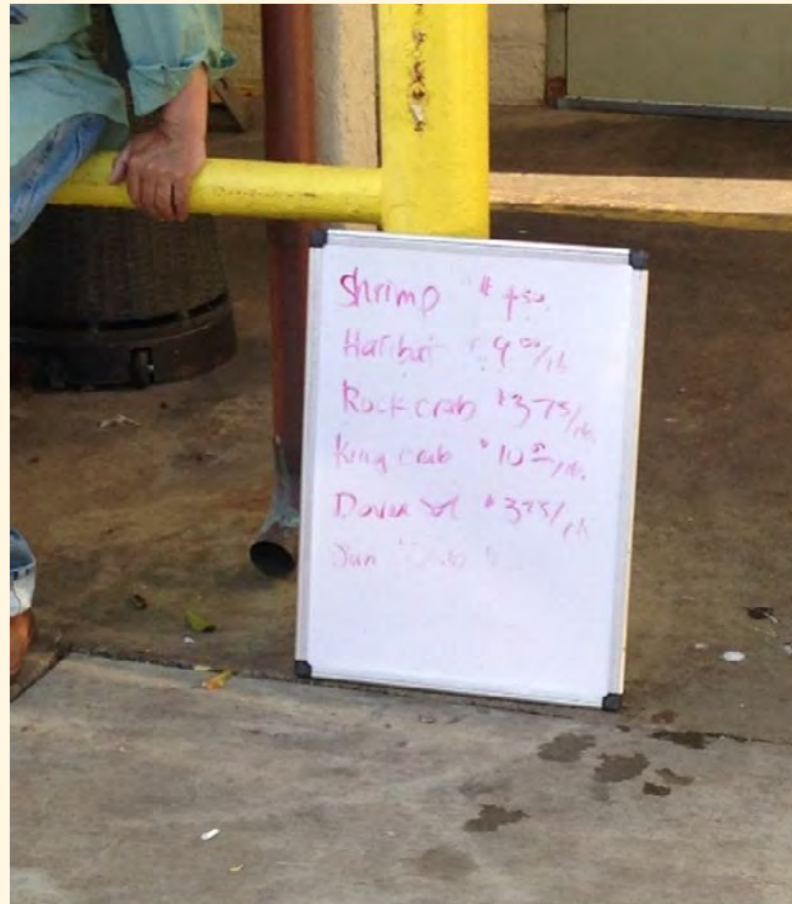 Shrimp $ 4 50
Halibut $ 9 00/lb
Rock crab $3 75/lb.
King crab $10 00/lb.
Dover Sol $3 75/lb
Sun